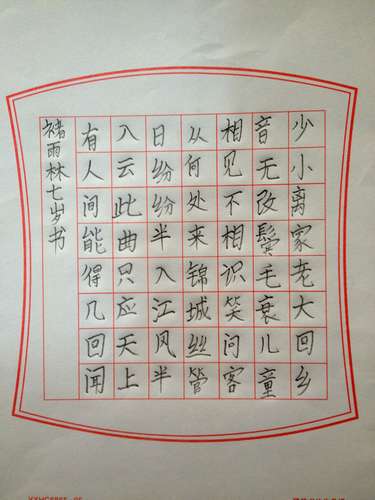 少小离家老大回乡
音无改鬓毛衰儿童
相见不相识笑问客
从何处来锦城丝管
日纷纷半入江风半
入云此曲只应天上
有人间能得几回闻
褚雨林七岁书